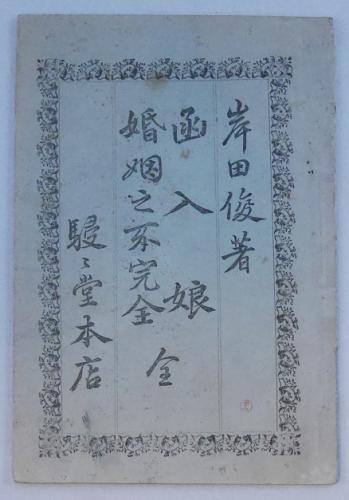 岸田俊著
函入娘
婚姻之不完全
全
駸〻堂本店